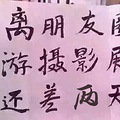 离朋友圈
游摄影展
还差两天